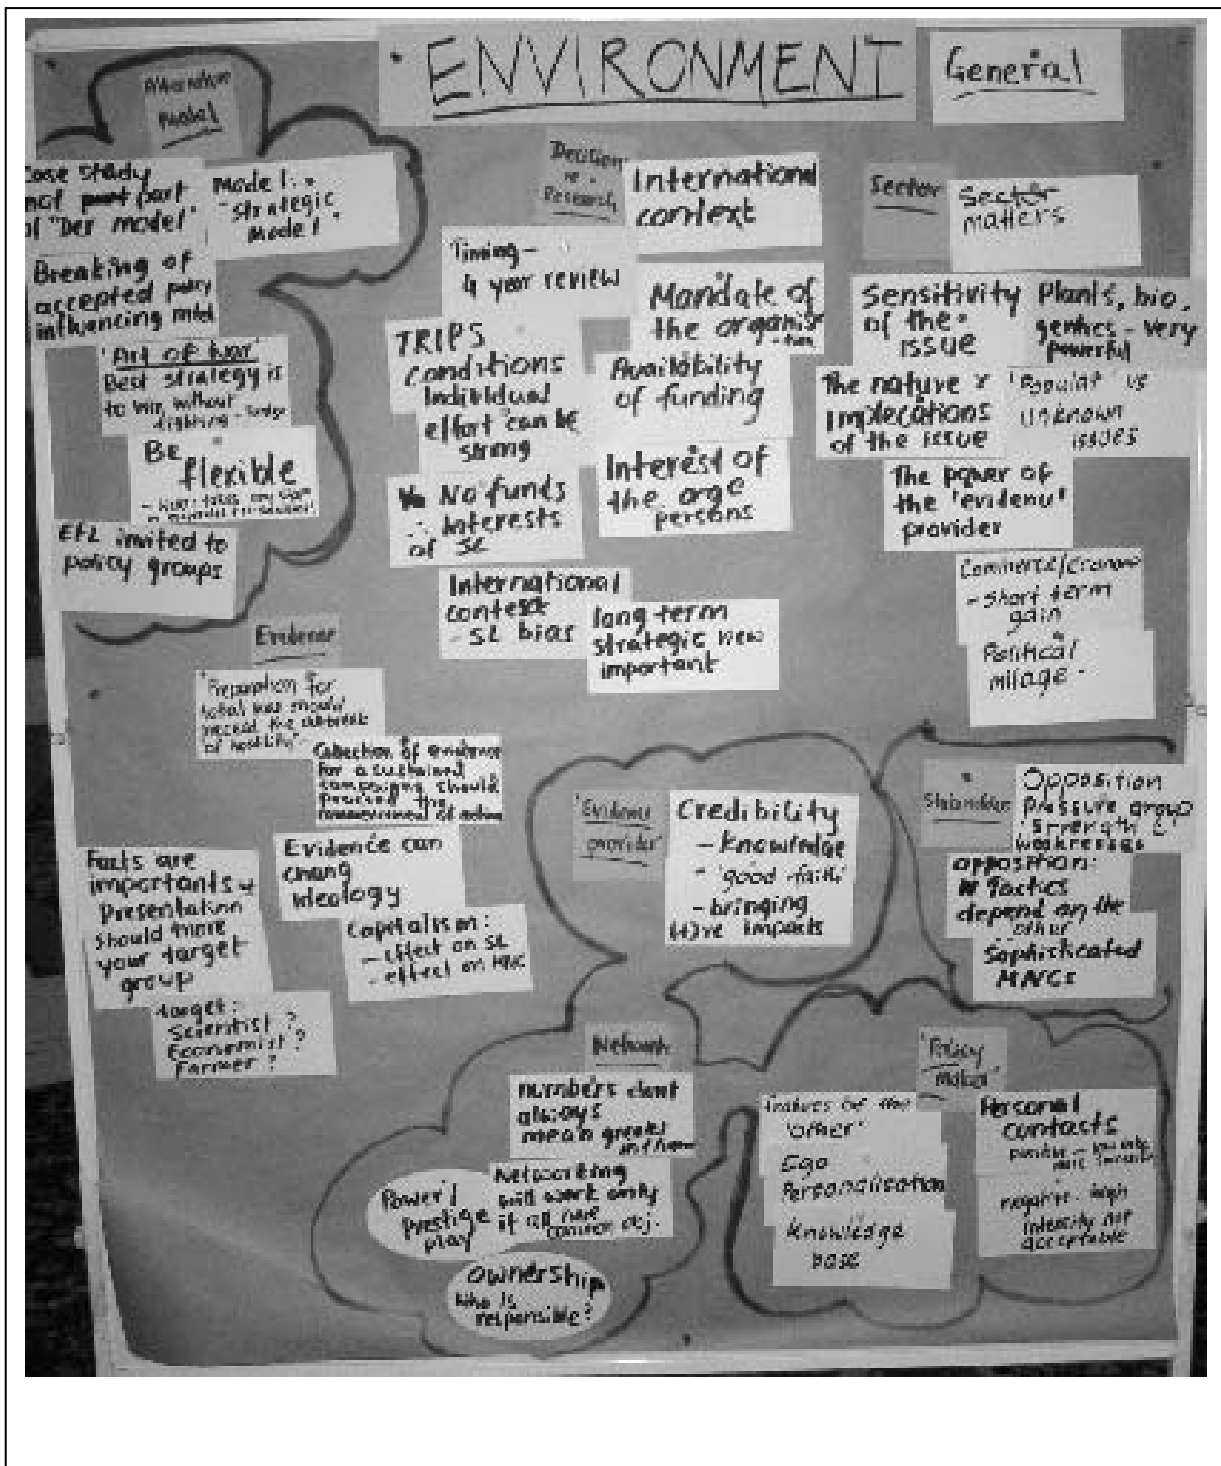 ENVIRONMENT
General
Model
Case study
not part
of "Der model"
Model:
"Strategic
Model"
Breaking of
accepted policy
influencing
'Art of War'
Best strategy is
to win without
fighting
Be
flexible
EFL invited to
policy groups
Decision
Research
International
context
Timing -
4 year review
Mandate of
the organisa
-tion
TRIPS
conditions
Individual
effort can be
strong
Availability
of funding
No funds
∴ Interests
of SL
Interest of
the orge
persons
International
context
- SL bias
long term
strategic
important
Sector
Sector
matters
Sensitivity
of the
issue
Plants, bio,
- very
powerful
The nature &
implecations
of the issue
'Popular' vs
Unknown
issues
The power of
the 'evidenu'
provider
- Short term
gain
Political
milage.
Evidence
'Preparation for
should
the
of
Collection of evidence
for a sustained
campaigng should
the
of action
Evidence can
chang
ideology
Facts are
importants
Presentation
should
your target
group
Capitalism:
- effect on SL
- effect on
target:
Scientist?
Economist?
Farmer?
'Evidence
provider'
Credibility
- Knowledge
- 'good faith'
- bringing
(+)ve impacts
Opposition
pressure group
Strength &
weaknesses
opposition:
Tactics
depend on the
other
Sophisticated
MNCs
Network
numbers dont
always
mean greater
Networking
will work only
if all have
common obj.
Power/
prestige
play
Ownership
Who is
responsible?
'Policy
Maker'
of the
'other'
Ego
Personalisation
Knowledge
base
Personal
contacts
positive -
negative - high
intensity not
acceptable